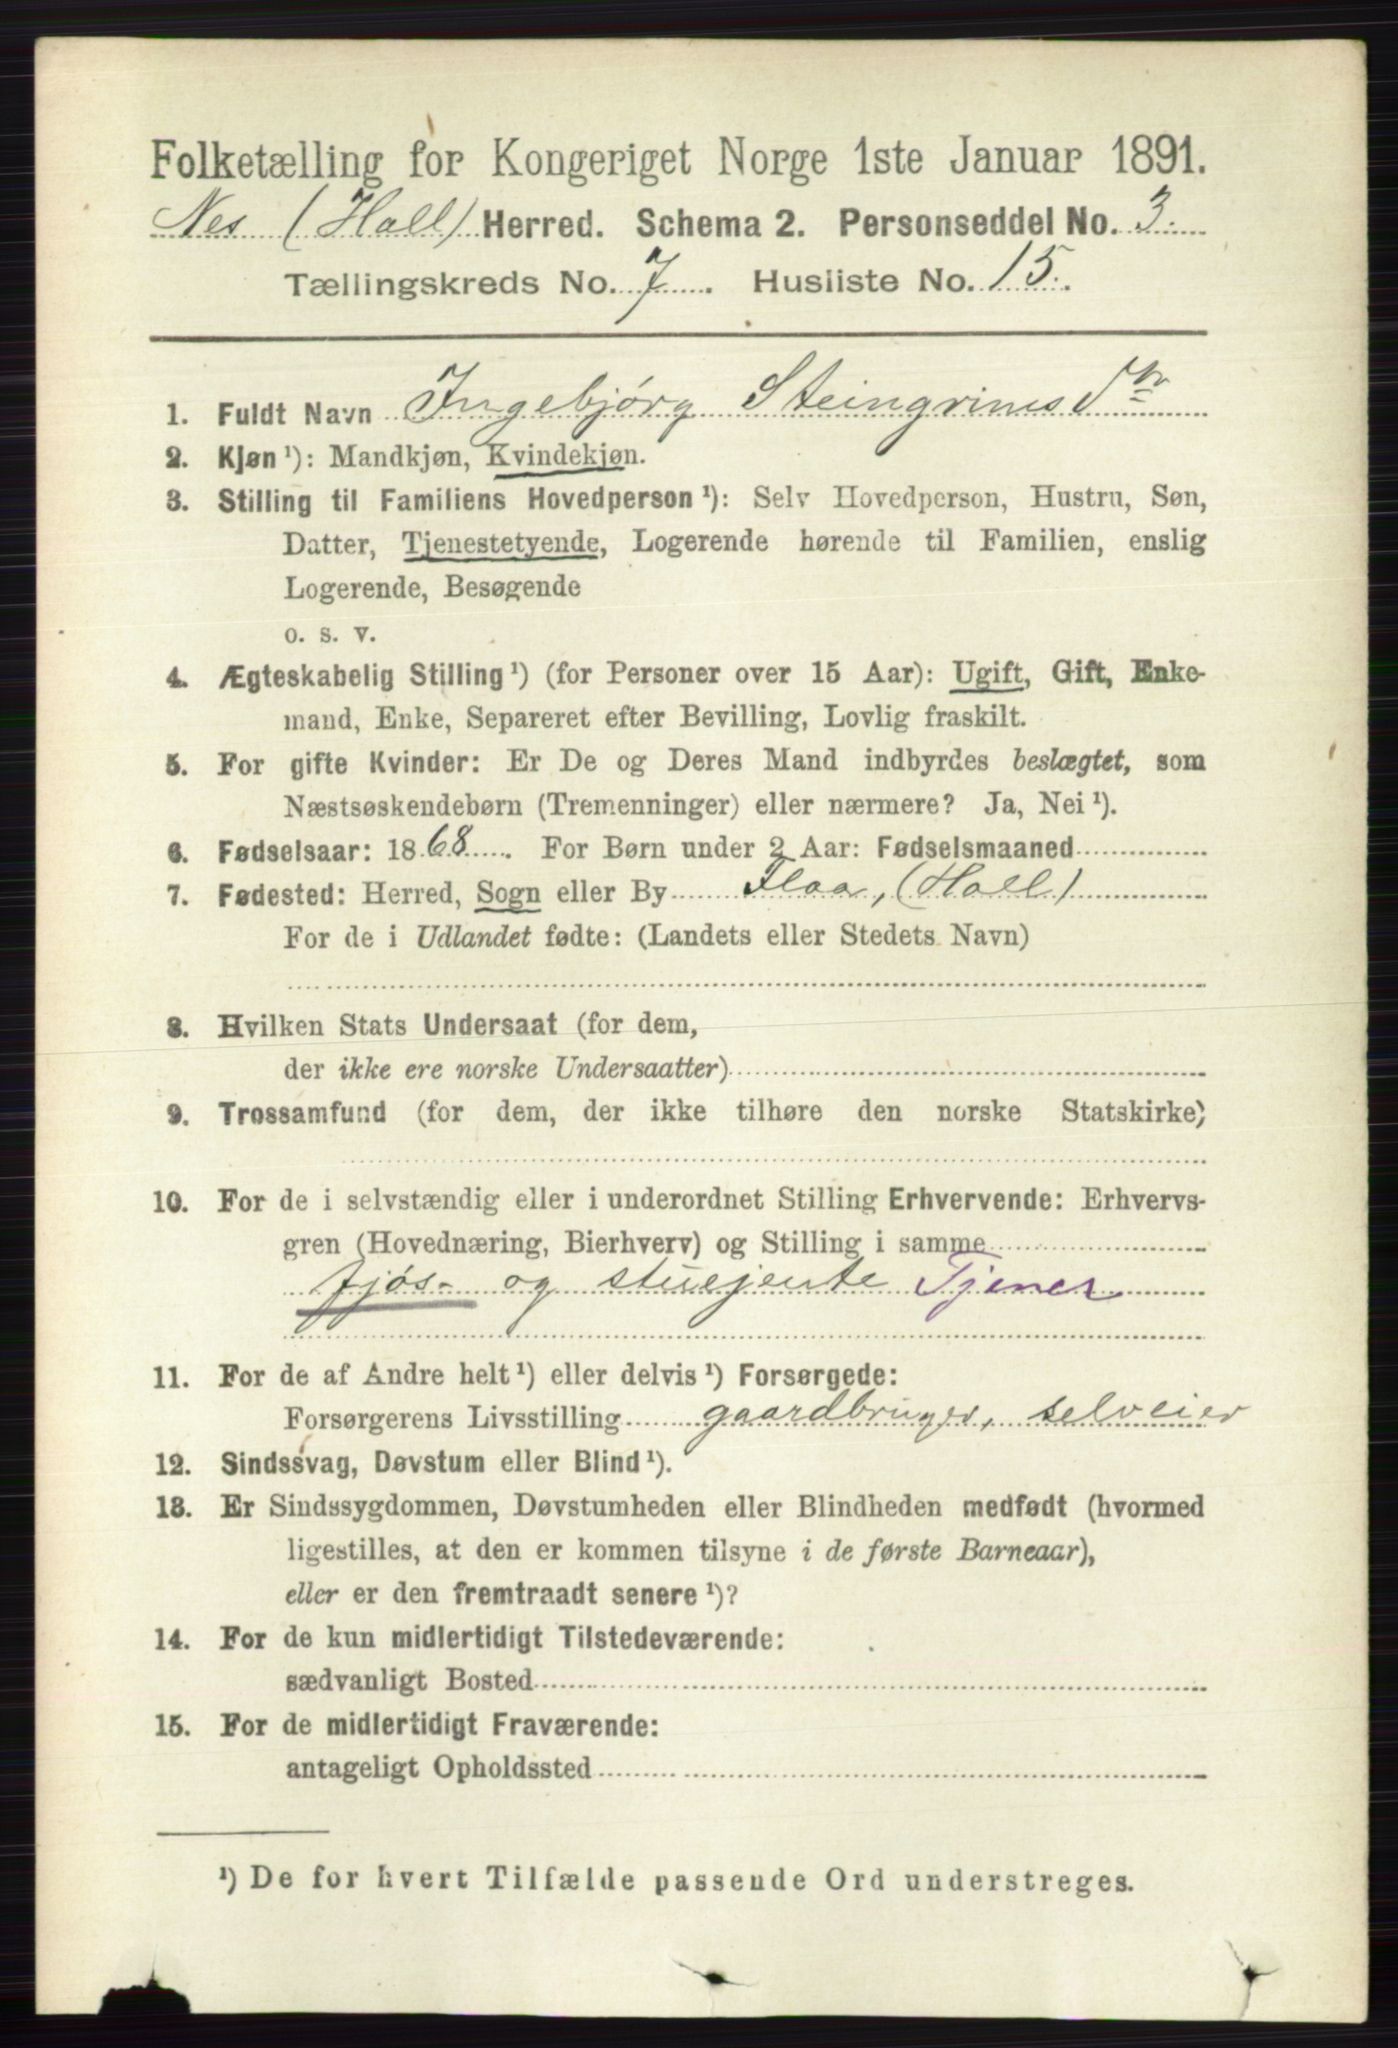 Folketælling for Kongeriget Norge 1ste Januar 1891.
Nes (Hall) Herred. Schema 2. Personseddel No. 3.
Tællingskreds No. 7. Husliste No. 15.
1. Fuldt Navn Ingebjörg Steingrimsdtr
2. Kjøn ¹): Mandkjøn, Kvindekjøn.
3. Stilling til Familiens Hovedperson ¹): Selv Hovedperson, Hustru, Søn,
Datter, Tjenestetyende, Logerende hørende til Familien, enslig
Logerende, Besøgende
o. s. v.
4. Ægteskabelig Stilling ¹) (for Personer over 15 Aar): Ugift, Gift, Enke-
mand, Enke, Separeret efter Bevilling, Lovlig fraskilt.
5. For gifte Kvinder: Er De og Deres Mand indbyrdes beslægtet, som
Næstsøskendebørn (Tremenninger) eller nærmere? Ja, Nei ¹).
6. Fødselsaar: 1868. For Børn under 2 Aar: Fødselsmaaned
7. Fødested: Herred, Sogn eller By Flaa, (Hall)
For de i Udlandet fødte: (Landets eller Stedets Navn)
8. Hvilken Stats Undersaat (for dem,
der ikke ere norske Undersaatter)
9. Trossamfund (for dem, der ikke tilhøre den norske Statskirke)
10. For de i selvstændig eller i underordnet Stilling Erhvervende: Erhvervs-
gren (Hovednæring, Bierhverv) og Stilling i samme
fjös- og stuejente Tjener
11. For de af Andre helt ¹) eller delvis ¹) Forsørgede:
Forsørgerens Livsstilling gaardbruger, selveier
12. Sindssvag, Døvstum eller Blind ¹).
13. Er Sindssygdommen, Døvstumheden eller Blindheden medfødt (hvormed
ligestilles, at den er kommen tilsyne i de første Barneaar),
eller er den fremtraadt senere ¹)?
14. For de kun midlertidigt Tilstedeværende:
sædvanligt Bosted
15. For de midlertidigt Fraværende:
antageligt Opholdssted
¹) De for hvert Tilfælde passende Ord understreges.